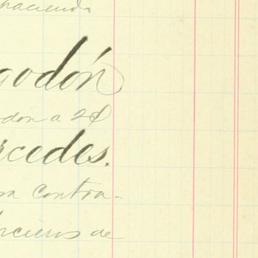 hacienda
godón
don a 2¢
rcedes.
sa contra-
rceros de